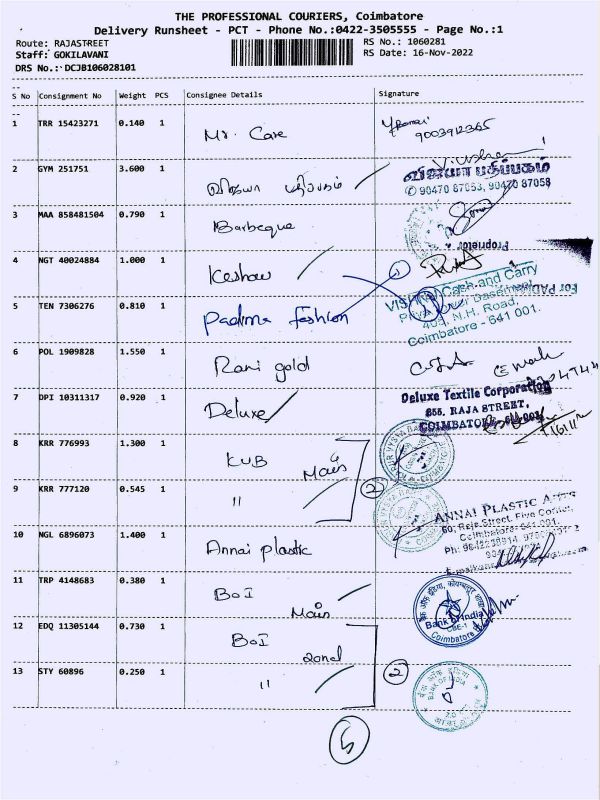 THE PROFESSIONAL COURIERS, Coimbatore
Delivery Runsheet - PCT - Phone No.:0422-3505555 - Page No.:1
Route: RAJASTREET
RS No.: 1060281
Staff: GOKILAVANI
RS Date: 16-Nov-2022
DRS No.: DCJB106028101
S No Consignment No Weight PCS Consignee Details Signature
1 TRR 15423271 0.140 1 Mr. Care
9003912365
2 GYM 251751 3.600 1 விஜயா பதிப்பகம்
விஜயா பதிப்பகம்
✆ 90470 87053, 90470 87058
3 MAA 858481504 0.790 1 Barbeque
Proprietor
4 NGT 40024884 1.000 1 Keshav
5 TEN 7306276 0.810 1 Padma fashion
Cash and Carry
409, N.H. Road,
Coimbatore - 641 001.
6 POL 1909828 1.550 1 Rani gold
7 DPI 10311317 0.920 1 Deluxe
Deluxe Textile Corporation
855, RAJA STREET,
COIMBATORE
16/11
8 KRR 776993 1.300 1 KVB Main
9 KRR 777120 0.545 1 "
2
10 NGL 6896073 1.400 1 Annai plastic
ANNAI PLASTIC ARTS
60, Raja Street, Five Corner,
Coimbatore-641 001.
11 TRP 4148683 0.380 1 BOI Main
Bank of India
CBE-1
Coimbatore
12 EDQ 11305144 0.730 1 BOI zonal
13 STY 60896 0.250 1 "
2
BANK OF INDIA